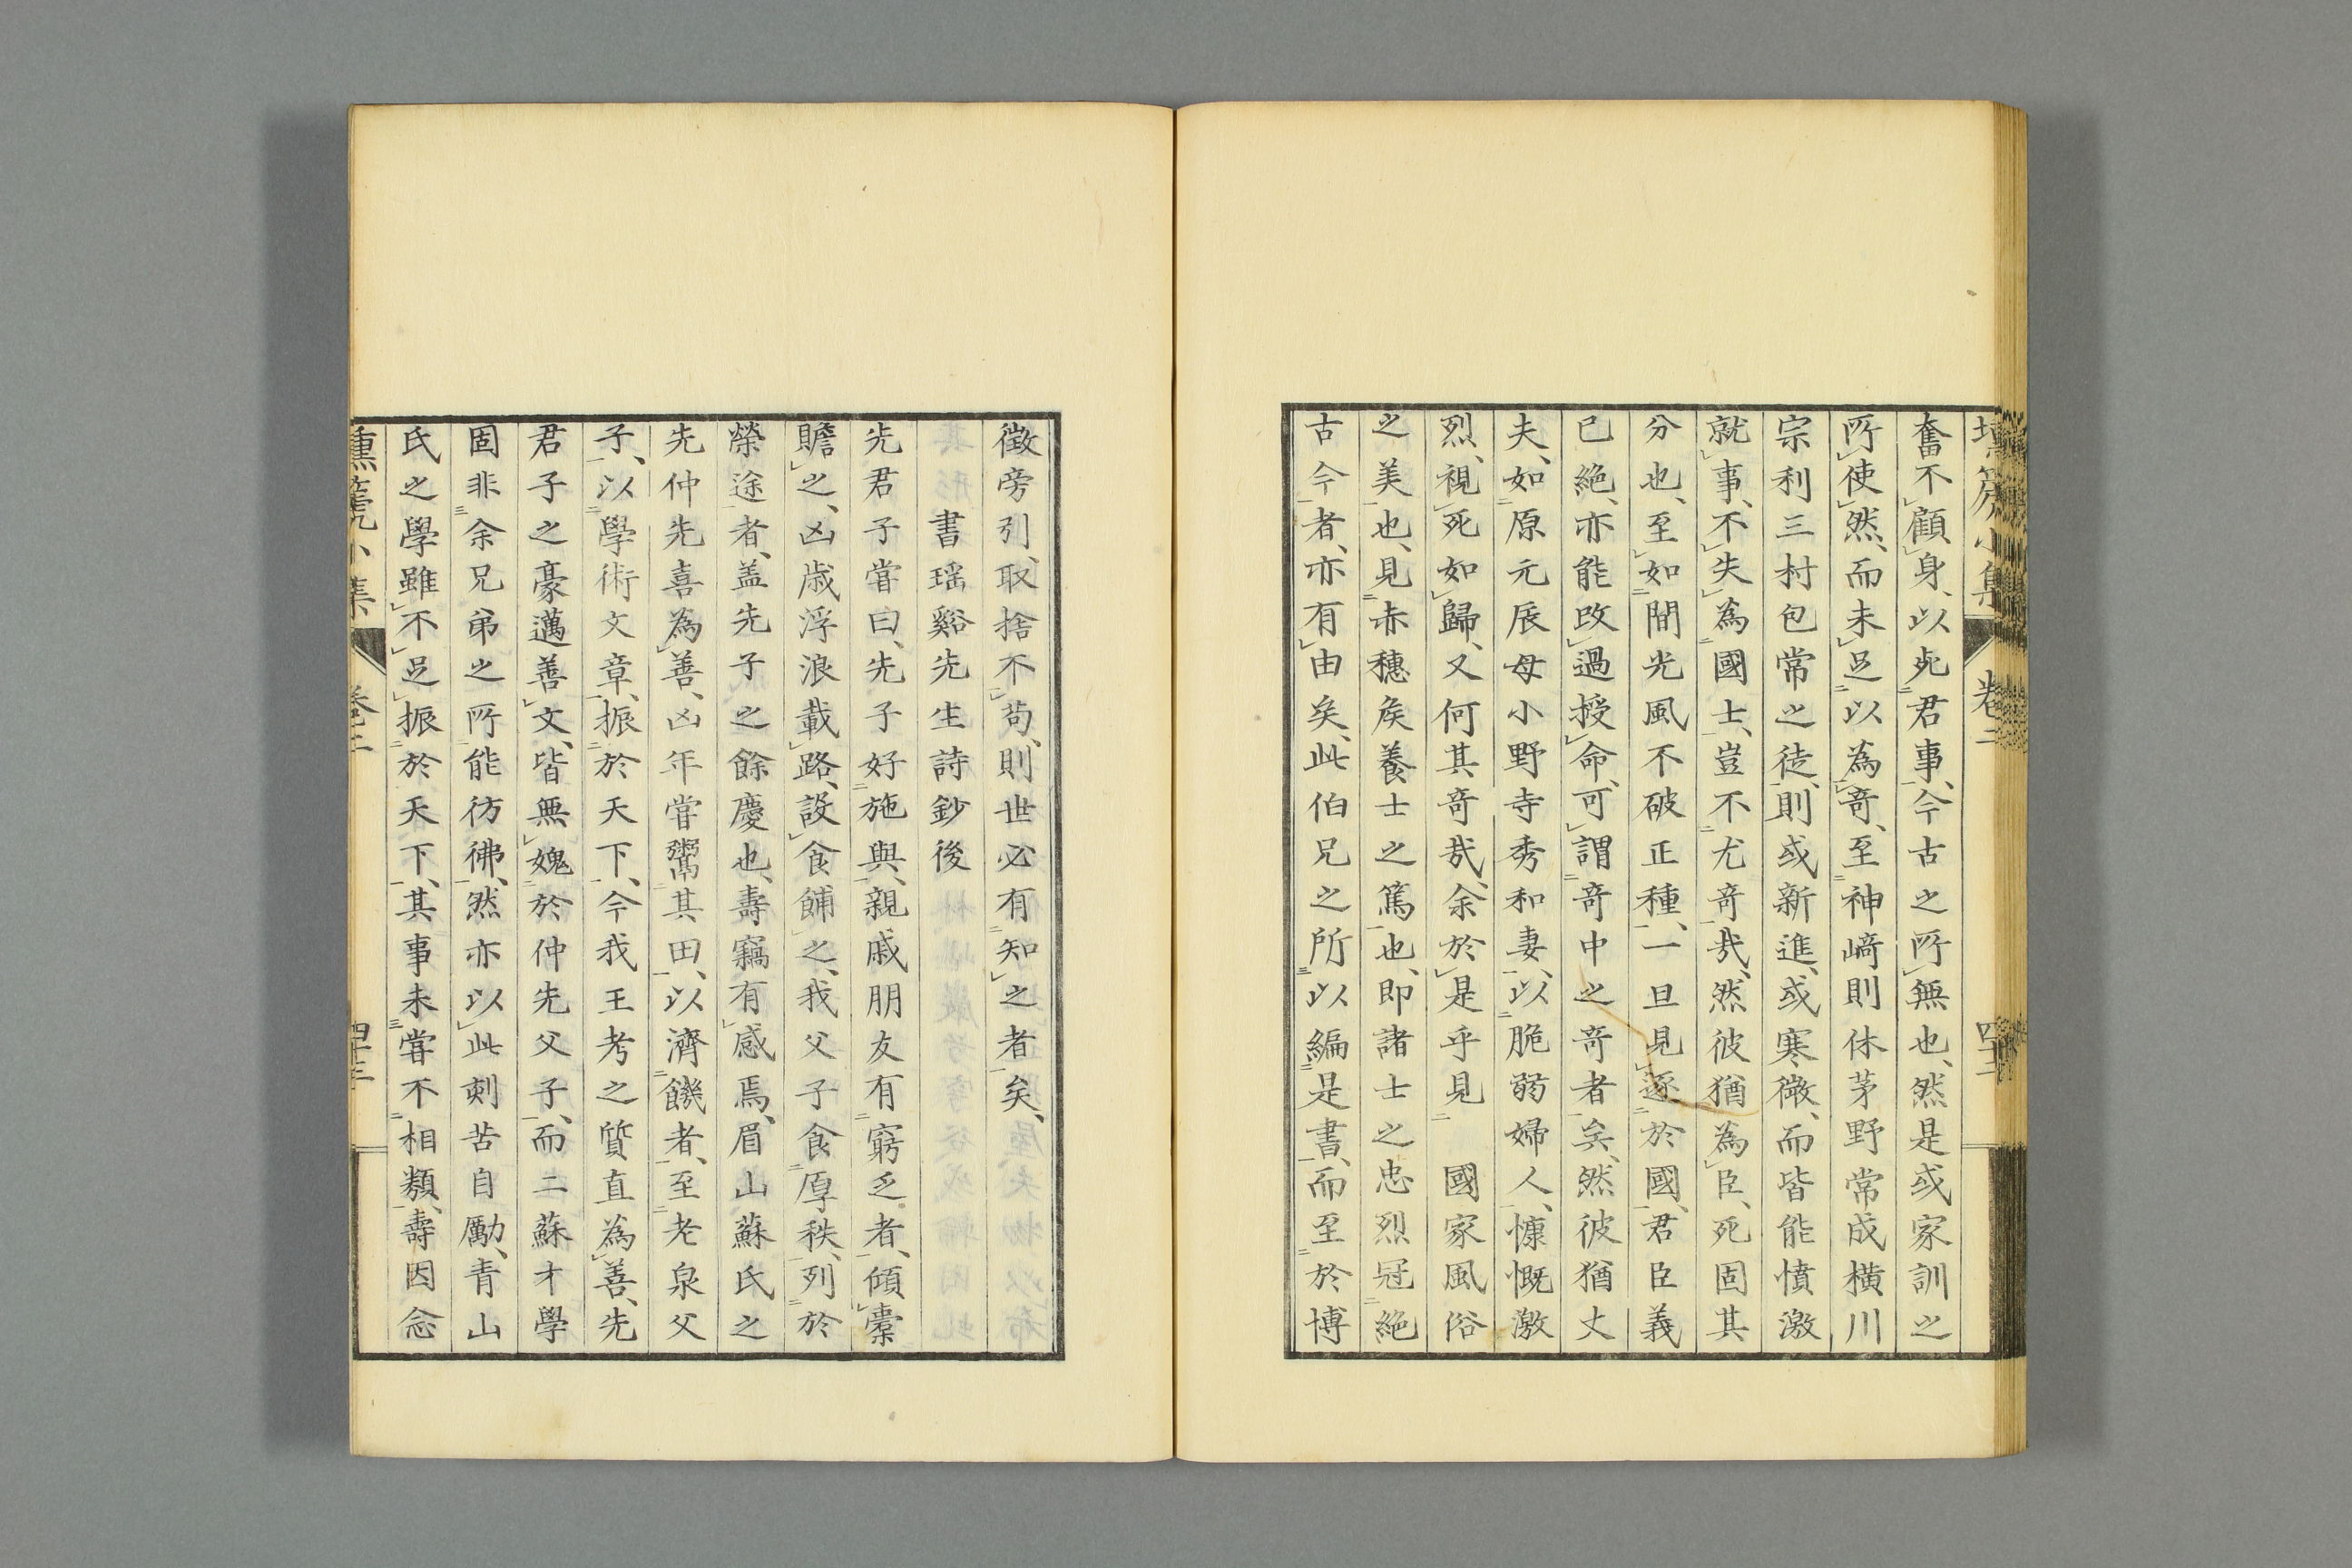 奮不顧身、以死君事、今古之所無也、然是或家訓之
所使然、而未足以為奇、至神崎則休茅野常成橫川
宗利三村包常之徒、則或新進、或寒微、而皆能憤激
就事、不失為國士、豈不尤奇哉、然彼猶為臣、死固其
分也、至如間光風不破正種、一旦見逐於國、君臣義
已絕、亦能改過授命、可謂奇中之奇者矣、然彼猶丈
夫、如原元辰母小野寺秀和妻、以脆弱婦人、慷慨激
烈、視死如歸、又何其奇哉、余於是乎見　國家風俗
之美也、見赤穗侯養士之篤也、即諸士之忠烈冠絕
古今者、亦有由矣、此伯兄之所以編是書、而至於博
塤篪小集 卷二 四十二
徵旁引、取捨不苟、則世必有知之者矣、
書瑶谿先生詩鈔後
先君子嘗曰、先子好施與、親戚朋友有窮乏者、傾橐
贍之、凶歲浮浪載路、設食餔之、我父子食厚秩、列於
榮途者、盖先子之餘慶也、壽竊有感焉、眉山蘇氏之
先仲先喜為善、凶年嘗鬻其田、以濟饑者、至老泉父
子、以學術文章、振於天下、今我王考之質直為善、先
君子之豪邁善文、皆無媿於仲先父子、而二蘇才學
固非余兄弟之所能彷彿、然亦以此刻苦自勵、青山
氏之學雖不足振於天下、其事未嘗不相類、壽因念
壎篪小集 卷二 四十三